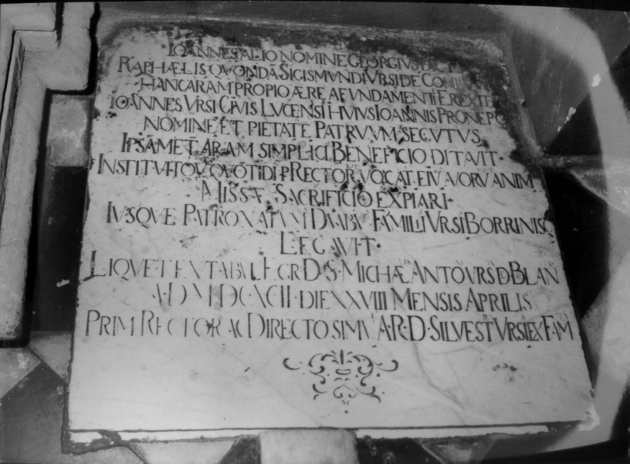 IOANNES ALIO NOMINE GEORGIVS
RAPHÆLIS QVONDĀ SIGISMVNDI VRSI DE
HANC ARAM PROPIO ÆRE A FVNDAMENTI EREXIT
IOANNES VRSI CIVIS LVCENSI HVIVS IOANNIS PRONEPO
NOMINE ET PIETATE PATRVVM SECVTVS
IPSAMET ARAM SIMPLICI BENEFICIO DITAVIT
INSTITVÆTQV QVOTIDI P RECTOR VOCAT EIV AVORV ANIM
MISSÆ SACRIFICIO EXPIARI
IVSQVE PATRONATVM DVABV FAMILII VRSI BORRINISQ
LEGAVIT
LIQVET EX TABVL EGR D S MICHÆ ANTO VRS D BLAN
A D MDCXCII DIE XXVIII MENSIS APRILIS
PRIM RECTOR AC DIRECTO SIMV A R D SILVEST VRSI EX FAM